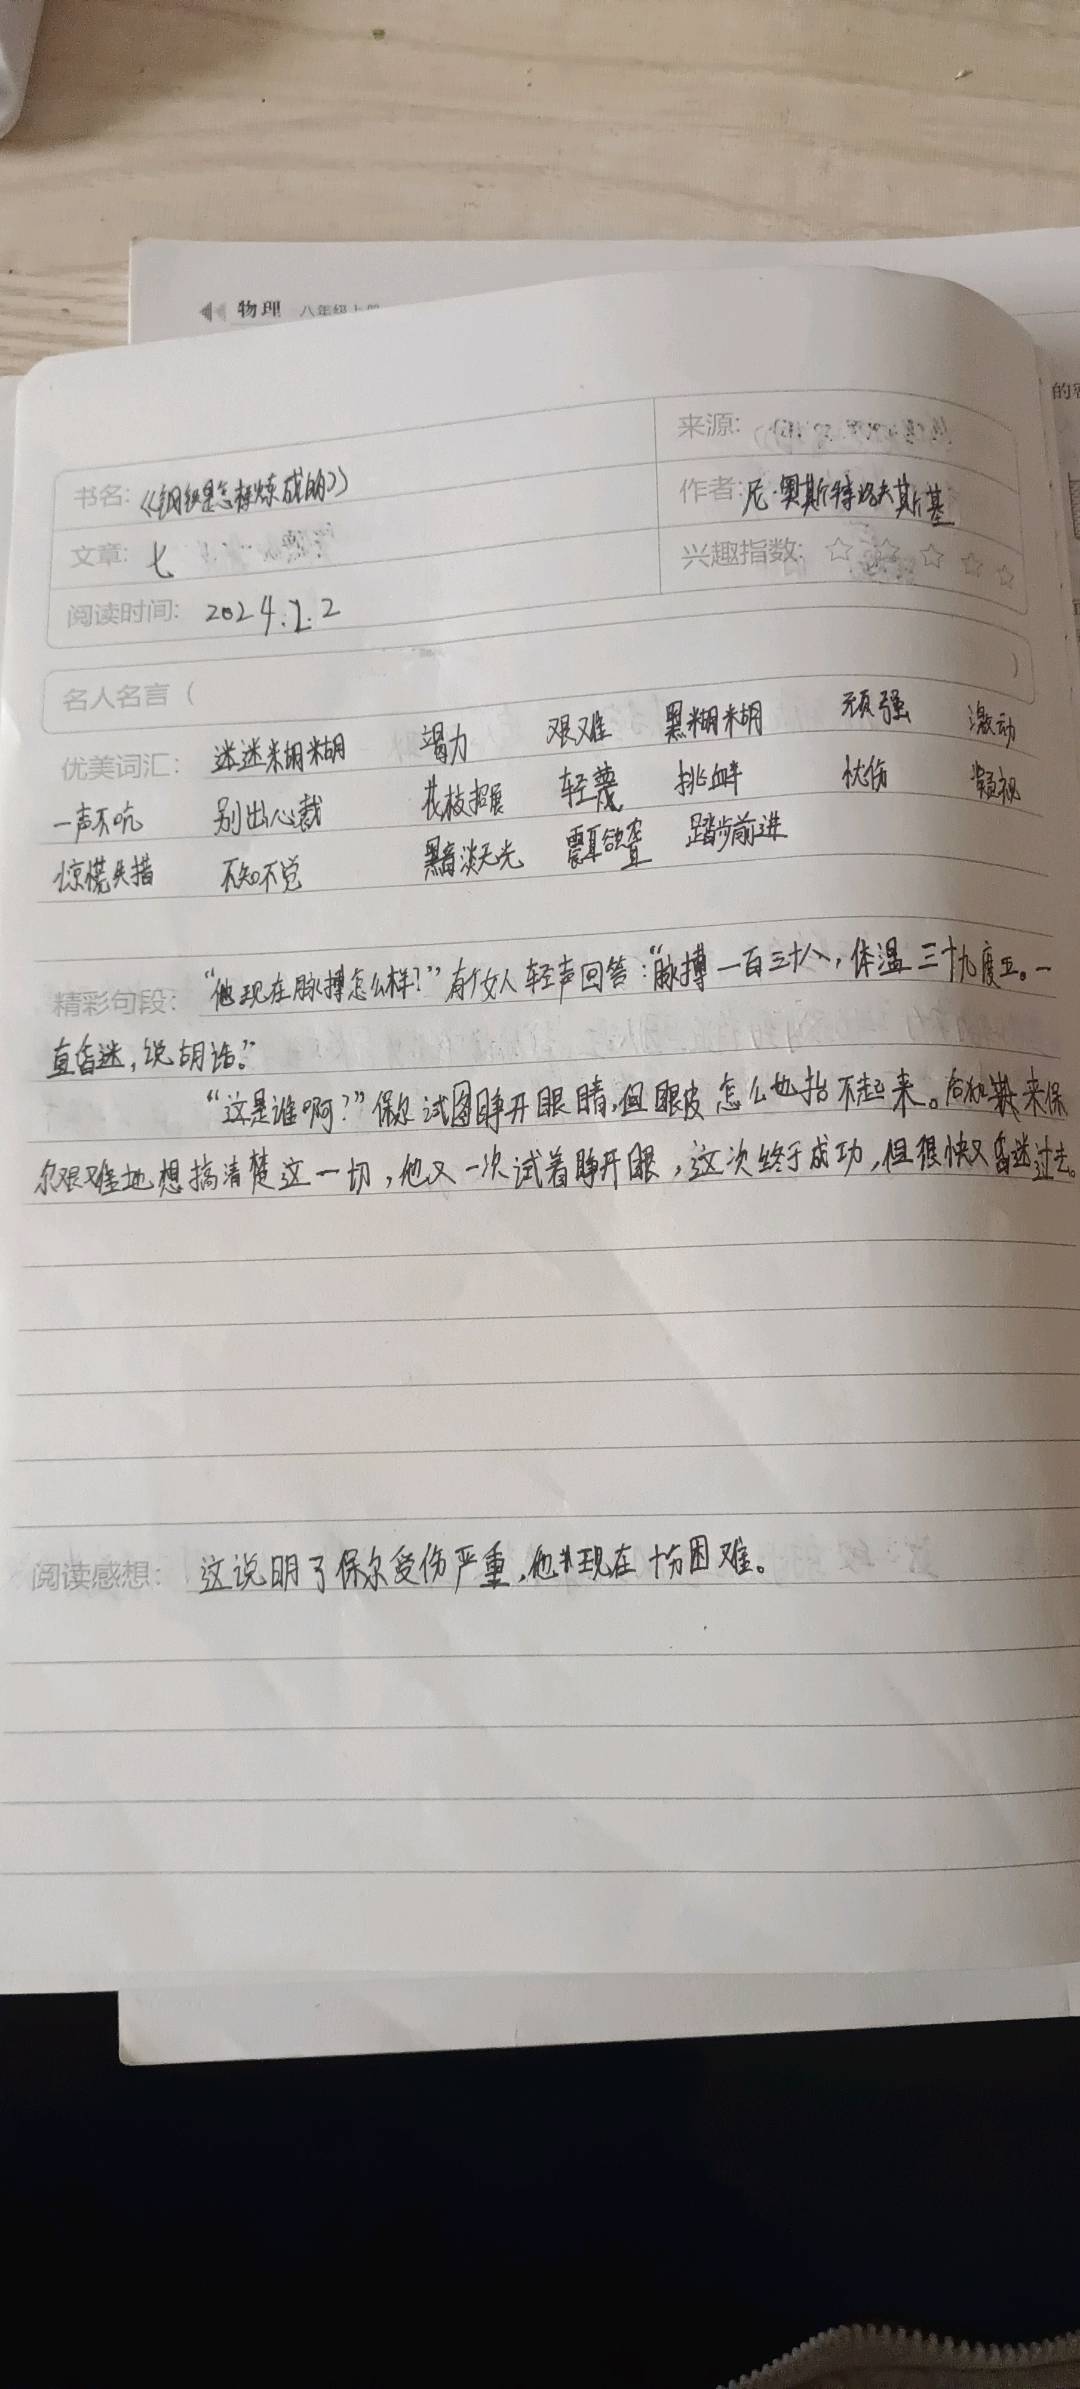 物理 八年级上册
的
来源:
书名: 《钢铁是怎样炼成的》
作者: 尼·奥斯特洛夫斯基
文章: 七
兴趣指数: ☆ ☆ ☆ ☆ ☆
阅读时间: 2024.1.2
名人名言（ ）
优美词汇: 迷迷糊糊 竭力 艰难 黑糊糊 顽强 激动
一声不吭 别出心裁 花枝招展 轻蔑 挑衅 忧伤 凝视
惊慌失措 不知不觉 黯淡无光 震耳欲聋 踏步前进
精彩句段: “他现在脉搏怎么样?”有个女人轻声回答:“脉搏一百三十八,体温三十九度五。一
直昏迷,说胡话。”
“这是谁啊?”保尔试图睁开眼睛,但眼皮怎么也抬不起来。后来保
尔艰难地想搞清楚这一切,他又一次试着睁开眼,这次终于成功,但很快又昏迷过去。
阅读感想: 这说明了保尔受伤严重,他现在十分困难。